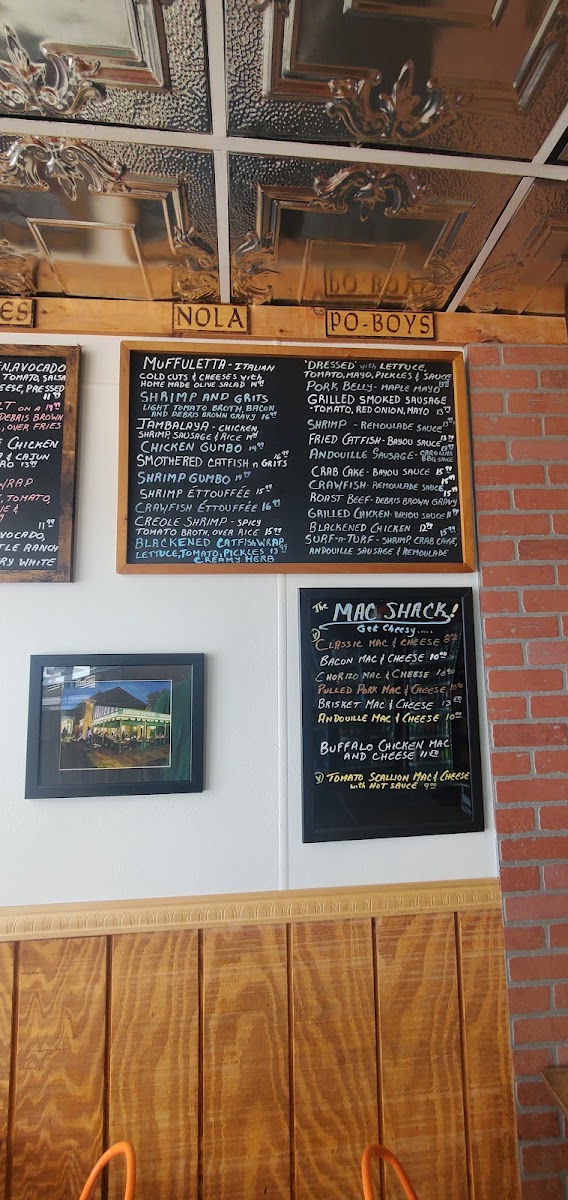 ES
NOLA
PO-BOYS
AVOCADO
TOMATO, SALSA
PRESSED
11.99
LT ON A 14.99
DEBRIS BROWN
OVER FRIES
CHICKEN
& CAJUN
13.99
WRAP
TOMATO,
&
11.99
AVOCADO,
RANCH
WHITE
MUFFULETTA - ITALIAN
COLD CUTS & CHEESES with
HOME MADE OLIVE SALAD 14.99
SHRIMP AND GRITS
LIGHT TOMATO BROTH, BACON
AND DEBRIS BROWN GRAVY 16.99
JAMBALAYA - CHICKEN
SHRIMP, SAUSAGE & RICE 14.99
CHICKEN GUMBO 14.99
SMOTHERED CATFISH n GRITS 16.99
SHRIMP GUMBO 14.99
SHRIMP ÉTTOUFFÉE 15.99
CRAWFISH ETTOUFFÉE 16.99
CREOLE SHRIMP - SPICY
TOMATO BROTH, OVER RICE 15.99
BLACKENED CATFISH WRAP
LETTUCE, TOMATO, PICKLES 13.99
CREAMY HERB
'DRESSED' with LETTUCE,
TOMATO, MAYO, PICKLES & SAUCE
PORK BELLY - MAPLE MAYO
GRILLED SMOKED SAUSAGE
- TOMATO, RED ONION, MAYO 13.99
SHRIMP - REMOULADE SAUCE 13.99
FRIED CATFISH - BAYOU SAUCE 13.99
ANDOUILLE SAUSAGE - CAROLINA BBQ SAUCE
CRAB CAKE - BAYOU SAUCE 15.99
CRAWFISH - REMOULADE SAUCE 15.99
ROAST BEEF - DEBRIS BROWN GRAVY
GRILLED CHICKEN - BAYOU SAUCE 11.99
BLACKENED CHICKEN 12.99
SURF-n-TURF - SHRIMP, CRAB CAKE,
ANDOUILLE SAUSAGE & REMOULADE
The MAC SHACK!
Get Cheesy.....
V CLASSIC MAC & CHEESE 8.00
BACON MAC & CHEESE 10.00
CHORIZO MAC & CHEESE
PULLED PORK MAC & CHEESE
BRISKET MAC & CHEESE 13
ANDOUILLE MAC & CHEESE 10.00
BUFFALO CHICKEN MAC
AND CHEESE 11.00
V TOMATO SCALLION MAC & CHEESE
with HOT SAUCE 9.00